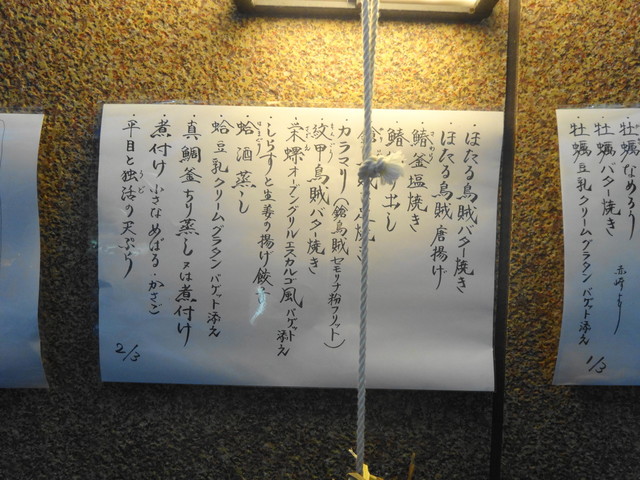 ・牡蠣なめろう
・牡蠣バター焼き 赤崎より
・牡蠣豆乳クリームグラタン バゲット添え
1/3
・ほたる烏賊バター焼き
・ほたる烏賊唐揚げ
・鰆釜塩焼き
・鰆 り出し
・鎗 賊 焼き
・カラマリ(鎗烏賊セモリナ粉フリット)
・紋甲烏賊バター焼き
・栄螺オーブングリルエスカルゴ風バゲット添え
・しらすと生姜の揚げ餃子
・蛤酒蒸し
・蛤豆乳クリームグラタンバゲット添え
・真鯛釜ちり蒸し又は煮付け
・煮付け 小さなめばる・かさご
・平目と独活の天ぷら
2/3